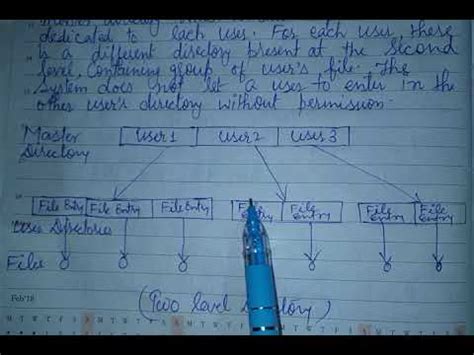 dedicated to each user. For each user, there
is a different directory present at the second
level, containing group of user's file. The
System does not let a user to enter in the
other user's directory without permission.
Master User 1 User 2 User 3
Directory
File Entry File Entry File Entry File Entry File Entry File Entry File Entry
User Directories
File
(Two level Directory)
Feb'18
M T W T F S S M T W T F S S M T W T F S S M T W T F S S